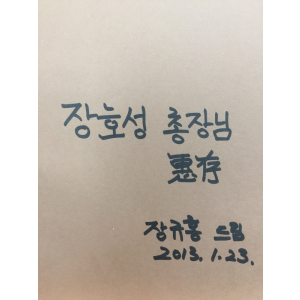 장호성 총장님
惠存
장규홍 드림
2013. 1. 23.